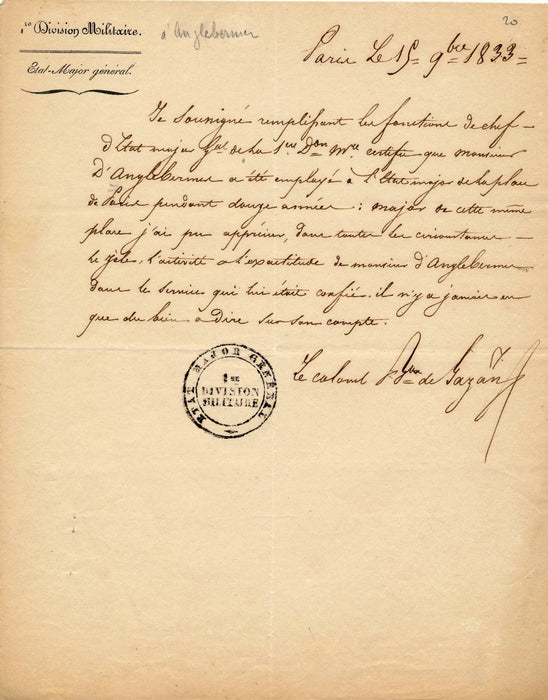 1re Division Militaire.
d'Anglebermer
20
Etat-Major général.
Paris Le 15 9bre 1833
Je Sousigné remplissant les fonctions de chef
d'Etat major Gal de la 1ere Don Mre certifie que monsieur
D'Anglebermer a été employé à l'Etat major de la place
de Paris pendant douze années : major de cette même
place j'ai pu apprécier, dans toutes les circonstances
le zèle, l'activité & l'exactitude de monsieur d'Anglebermer
dans le service qui lui était confié, il n'y a jamais eu
que du bien à dire sur son compte.
Le colonel Bon de Gazan
ETAT MAJOR GENERAL
1RE
DIVISION
MILITAIRE